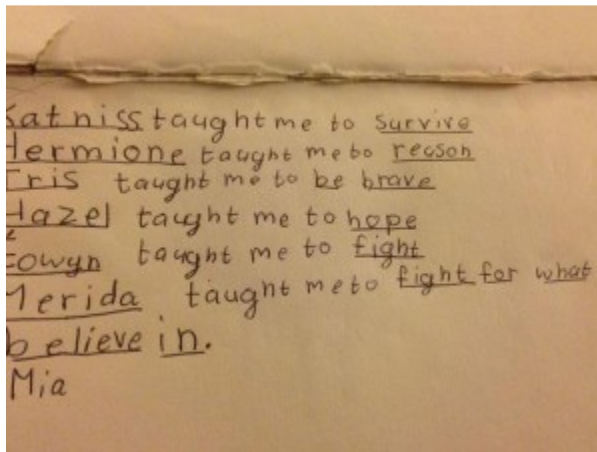 Katniss taught me to survive
Hermione taught me to reason
Tris taught me to be brave
Hazel taught me to hope
Éowyn taught me to fight
Merida taught me to fight for what
believe in.
Mia